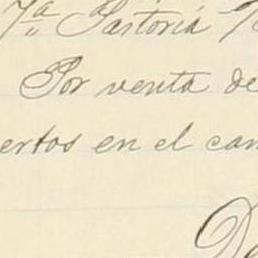 7ª Pastoria
Por venta de
ertos en el can